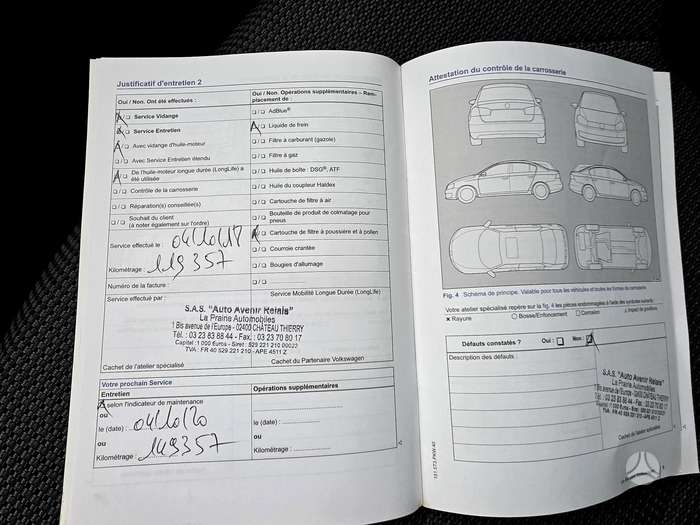 Justificatif d'entretien 2
Oui / Non. Ont été effectués :
Service Vidange
Service Entretien
Avec vidange d'huile-moteur
Avec Service Entretien étendu
De l'huile-moteur longue durée (LongLife) a été utilisée
Contrôle de la carrosserie
Réparation(s) conseillée(s)
Souhait du client
(à noter également sur l'ordre)
Service effectué le :
Kilométrage : 119357
Numéro de la facture :
Service effectué par :
Oui / Non. Opérations supplémentaires – Remplacement de :
AdBlue®
Liquide de frein
Filtre à carburant (gazole)
Filtre à gaz
Huile de boîte : DSG®, ATF
Huile du coupleur Haldex
Cartouche de filtre à air
Bouteille de produit de colmatage pour pneus
Cartouche de filtre à poussière et à pollen
Courroie crantée
Bougies d'allumage
Service Mobilité Longue Durée (LongLife)
S.A.S. "Auto Avenir Relais"
La Prairie Automobiles
1 Bis avenue de l'Europe - 02400 CHÂTEAU THIERRY
Tél. : 03 23 83 88 44 - Fax : 03 23 70 80 17
Capital : 1 000 Euros - Siret : 529 221 210 00022
TVA : FR 40 529 221 210 - APE 4511 Z
Cachet de l'atelier spécialisé
Cachet du Partenaire Volkswagen
Votre prochain Service
Entretien
selon l'indicateur de maintenance
ou
le (date) : 04/10/20
ou
Kilométrage : 149357
Opérations supplémentaires
le (date) :
ou
Kilométrage :
Attestation du contrôle de la carrosserie
Fig. 4 Schéma de principe. Valable pour tous les véhicules et toutes les formes de carrosserie.
Votre atelier spécialisé repère sur la fig. 4 les pièces endommagées à l'aide des symboles suivants :
Rayure
Bosse/Enfoncement
Corrosion
Impact de gravillons
Défauts constatés ? Oui : Non :
Description des défauts :
S.A.S. "Auto Avenir Relais"
La Prairie Automobiles
1 Bis avenue de l'Europe - 02400 CHÂTEAU THIERRY
Tél. : 03 23 83 88 44 - Fax : 03 23 70 80 17
Capital : 1 000 Euros - Siret : 529 221 210 00022
TVA : FR 40 529 221 210 - APE 4511 Z
Cachet de l'atelier spécialisé